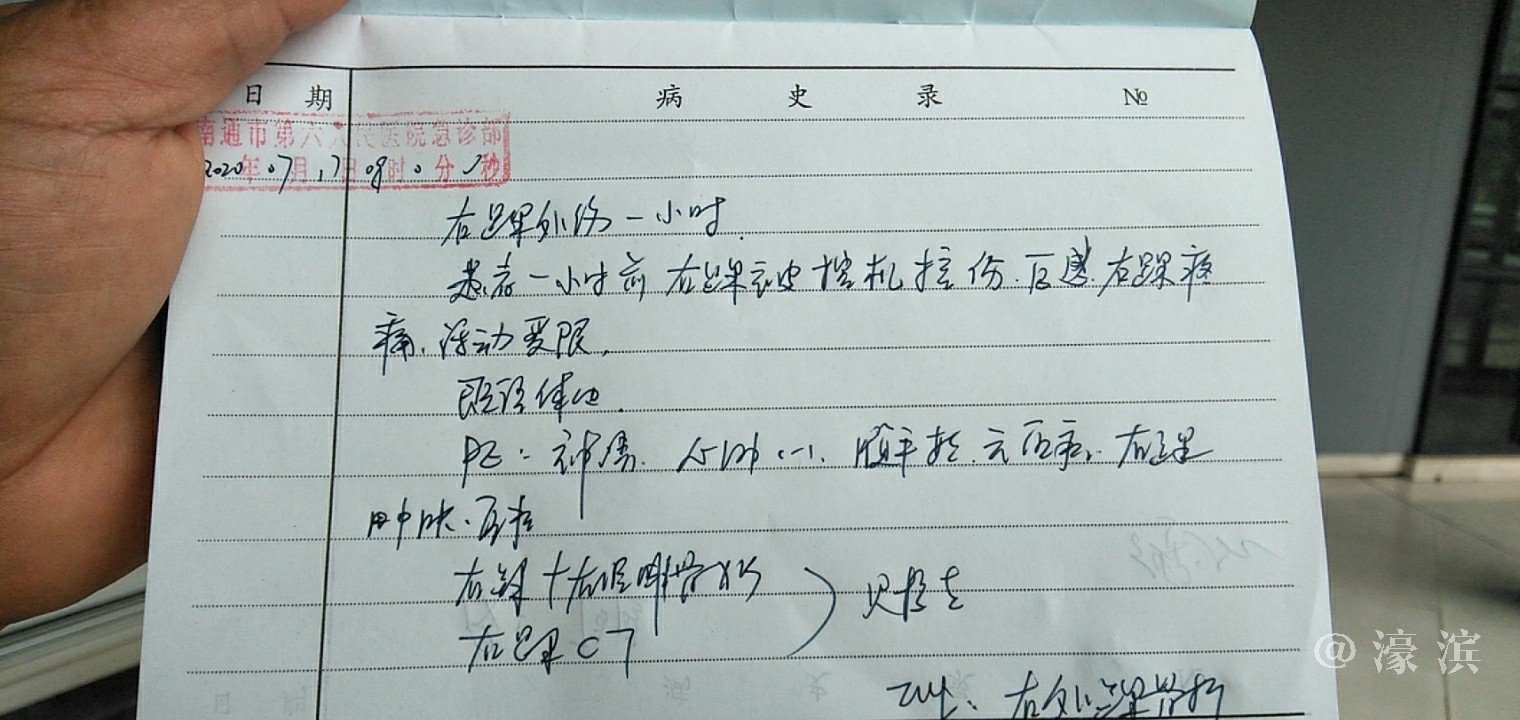 日 期 病 史 录 №
南通市第六人民医院急诊部
2020年07月17日08时0分 秒
右踝外伤一小时.
患者一小时前右踝部被挖机挖伤.后感.右踝疼
痛、活动受限.
既往体健.
PE：神清、心肺(-)、腹平软.无压痛、右踝
肿胀、压痛
右踝+右跟骨
右踝CT
见报告
右外踝骨折
@濠滨